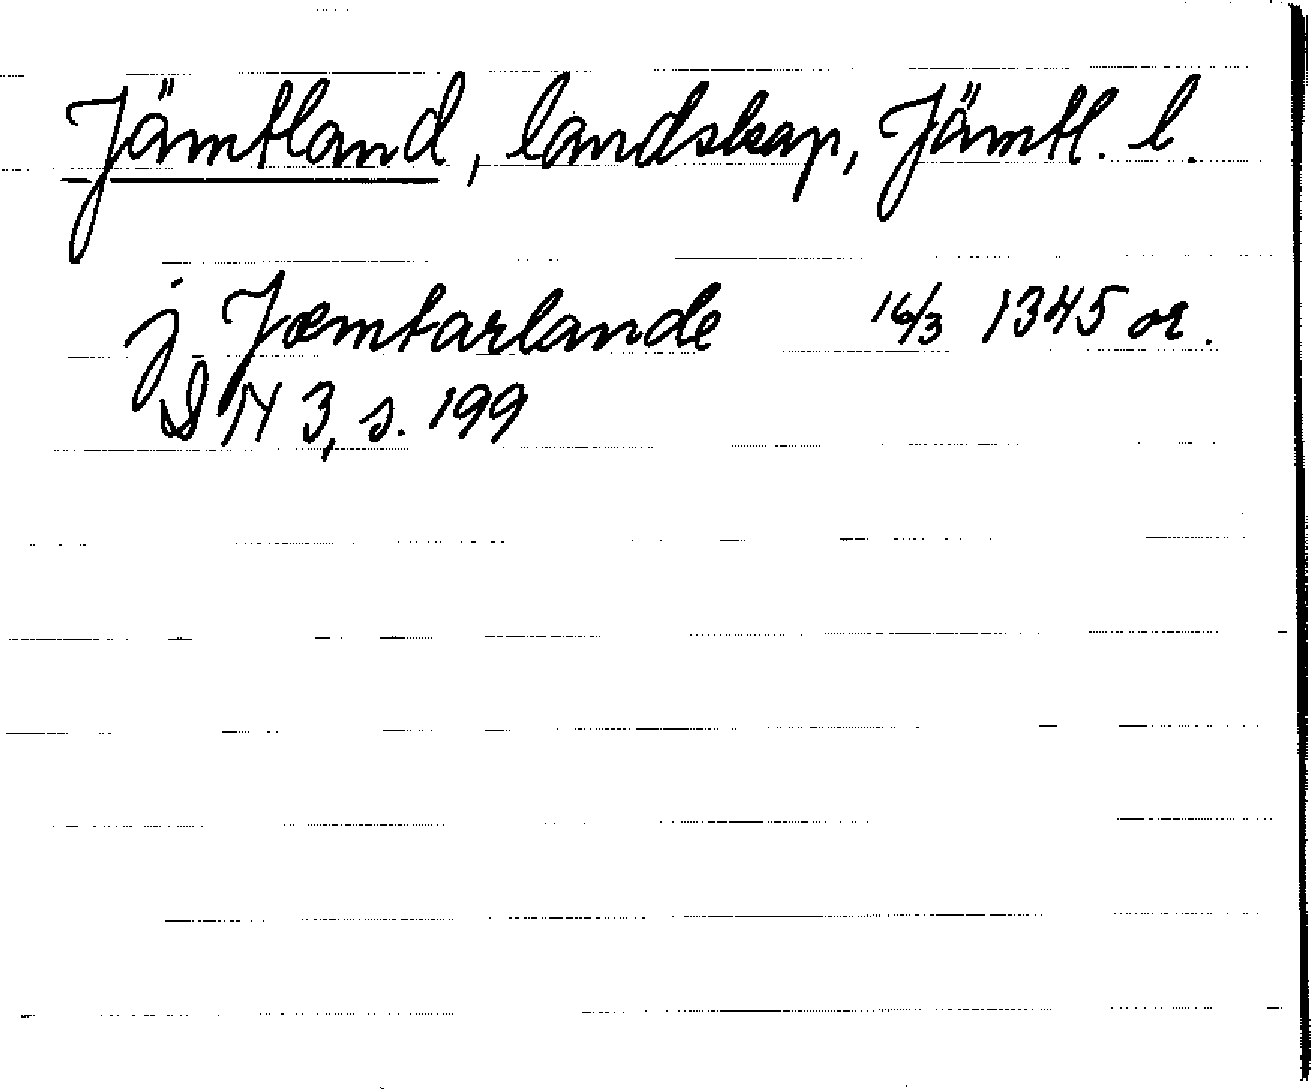 Jämtland, landskap, Jämtl. l.
j Jæmtarlande 16/3 1345 or.
DN 3, s. 199